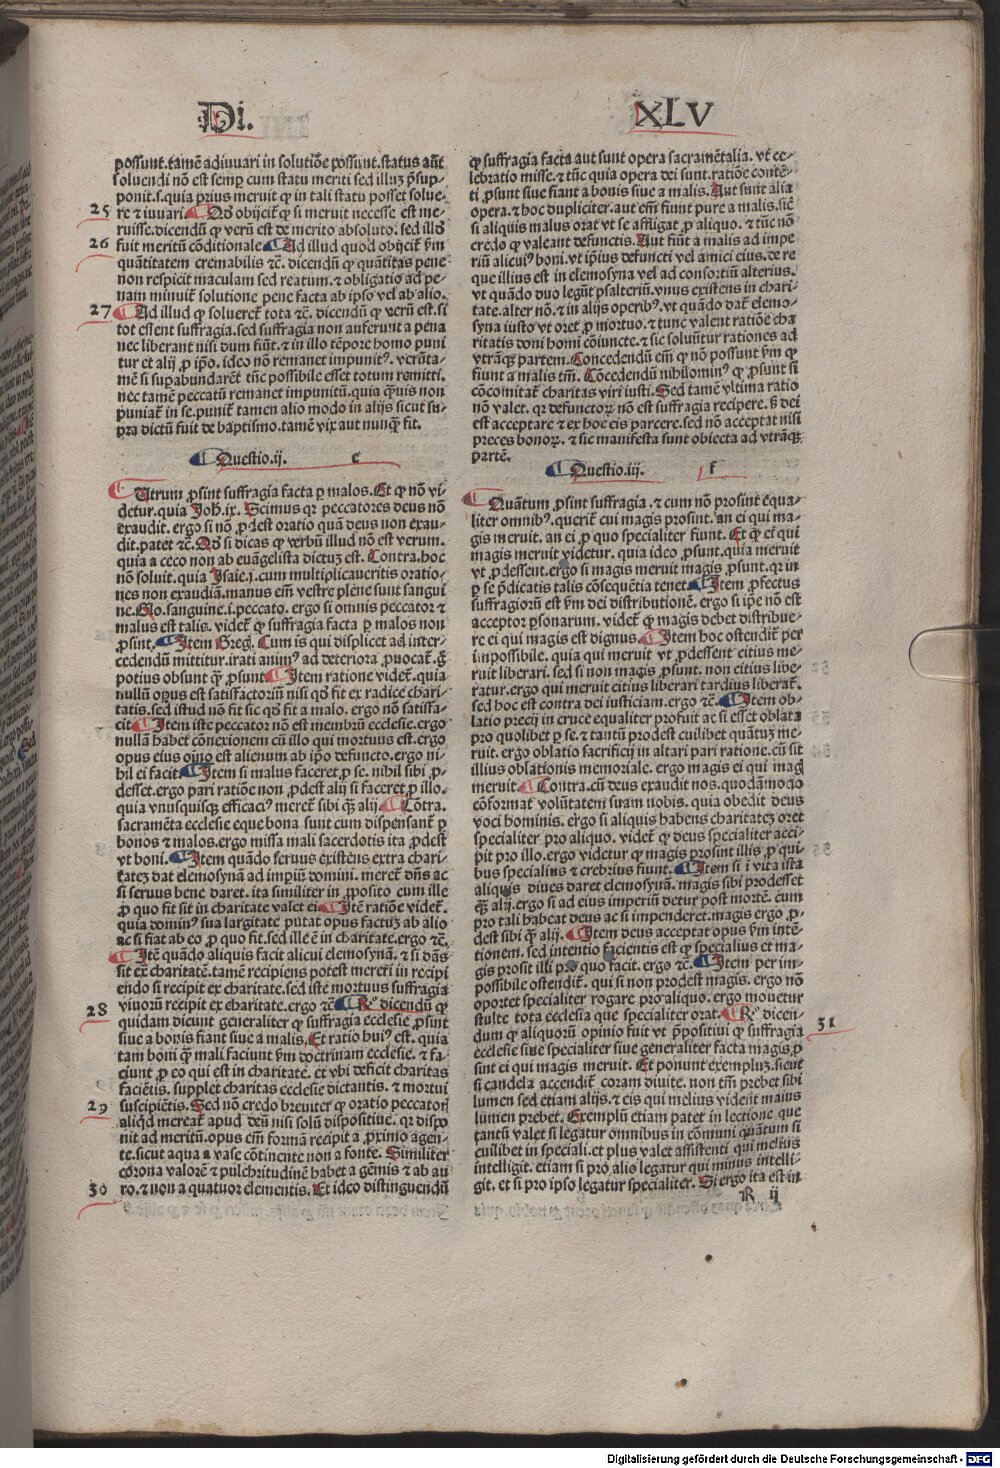 Di.
XLV
possunt.tamē adiuuari in solutiōe possunt.status aūt
soluendi nō est semꝑ cum statu meriti sed illuꝫ p̄sup-
ponit.s.quia prius meruit ꝙ in tali statu posset solue-
25
re ⁊ iuuari. Qđ obijcit̄ ꝙ si meruit necesse est me-
ruisse.dicendū ꝙ verū est de merito absoluto. sed illđ
26
fuit meritū cōditionale Ad illud quod obijcit̄ ẜm
quātitatem cremabilis ⁊c̄. dicendū ꝙ quātitas pene
non respicit maculam sed reatum. ⁊ obligatio ad pe-
nam minuit̄ solutione pene facta ab ipso vel ab alio.
27
Ad illud ꝙ solueret̄ tota ⁊c̄. dicendū ꝙ verū est.si
tot essent suffragia.sed suffragia non auferunt a pena
nec liberant nisi dum fiūt. ⁊ in illo tēpore homo puni
tur et alij ꝓ ip̄o. ideo nō remanet impunitꝰ. verūta-
mē si supabundarēt tūc possibile esset totum remitti.
nec tamē peccatū remanet impunitū.quia ꝙuis non
puniat̄ in se.punit̄ tamen alio modo in alijs sicut su-
pra dictū fuit de baptismo.tamē vix aut nunꝙ̄ fit.
Questio.ij. e
Utrum ꝓsint suffragia facta ꝑ malos. Et ꝙ nō vi-
detur.quia Joh̄.ix. Scimus qꝛ peccatores deus nō
exaudit. ergo si nō ꝓdest oratio quā deus non exau-
dit.patet ⁊c̄. Qđ si dicas ꝙ verbū illud nō est verum.
quia a ceco non ab euāgelista dictuꝫ est. Contra.hoc
nō soluit. quia Isaie.j. cum multiplicaueritis oratio-
nes non exaudiā.manus em̄ vestre plene sunt sangui
ne. Glo.sanguine.i.peccato. ergo si omnis peccator ⁊
malus est talis. videt̄ ꝙ suffragia facta ꝑ malos non
ꝓsint. Item Greḡ. Cum is qui displicet ad inter-
cedendū mittitur.irati animꝰ ad deteriora ꝓuocat̄. g̊
potius obsunt ꝙ̄ ꝓsunt Item ratione videt̄. quia
nullū opus est satisfactoriū nisi qđ fit ex radice chari-
tatis.sed istud nō fit sic qđ fit a malo. ergo nō satisfa-
cit Item iste peccator nō est membrū ecclesie.ergo
nullā habet cōnexionem cū illo qui mortuus est.ergo
opus eius oīno est alienum ab ip̄o defuncto. ergo ni-
hil ei facit Item si malus faceret ꝓ se. nihil sibi ꝓ-
desset.ergo pari ratiōe non ꝓdest alij si faceret ꝓ illo.
quia vnusquisqꝫ efficaciꝰ meret̄ sibi ꝙ̄ alij Cōtra.
sacramēta ecclesie eque bona sunt cum dispensant̄ ꝑ
bonos ⁊ malos.ergo missa mali sacerdotis ita ꝓdest
vt boni. Item quādo seruus existens extra chari-
tateꝫ dat elemosynā ad imperiū domini. meret̄ dn̄s ac
si seruus bene daret. ita similiter in ꝓposito cum ille
ꝓ quo fit sit in charitate valet ei Itē ratiōe videt̄.
quia dominꝰ sua largitate putat opus factuꝫ ab alio
ac si fiat ab eo ꝓ quo fit.sed ille ē in charitate.ergo ⁊c̄.
Itē quādo aliquis facit alicui elemosynā. ⁊ si dās
sit ex̄ charitatē.tamē recipiens potest mereri in recipi
endo si recipit ex charitate.sed iste mortuus suffragia
28
viuorū recipit ex charitate.ergo ⁊c̄ Rº dicendū ꝙ
quidam dicunt generaliter ꝙ suffragia ecclesie ꝓsint
siue a bonis fiant siue a malis. Et ratio huiꝰ est. quia
tam boni ꝙ̄ mali faciunt ẜm doctrinam ecclesie. ⁊ fa-
ciunt ꝓ eo qui est in charitate. et vbi deficit charitas
faciētis. supplet charitas ecclesie dictantis. ⁊ mortui
29
suscipiētis. Sed nō credo breuiter ꝙ oratio peccatoꝝ
aliqđ mereat̄ apud deū nisi solū dispositiue. qꝛ dispo
nit ad meritū.opus em̄ formā recipit a ꝓximo agen-
te.sicut aqua a vase cōtinente non a fonte. Similiter
corona valorē ⁊ pulchritudinē habet a gēmis ⁊ ab au
30
ro. ⁊ non a quatuor elementis. Et ideo distinguendū
ꝙ suffragia facta aut sunt opera sacramētalia. vt ce-
lebratio misse. ⁊ tūc quia opera dei sunt.ratiōe contē-
ti ꝓsunt siue fiant a bonis siue a malis. Aut sunt alia
opera. ⁊ hoc dupliciter.aut em̄ fiunt pure a malis.sic̄
si aliquis malus orat vt se affligat ꝓ aliquo. ⁊ tūc nō
credo ꝙ valeant defunctis. Aut fiūt a malis ad impe
riū alicuiꝰ boni. vt ip̄ius defuncti vel amici eius.de re
que illius est in elemosyna vel ad consortiū alterius.
vt quādo duo legūt psalteriū.vnus existens in chari-
tate.alter nō. ⁊ in alijs operibꝰ. vt quādo dat̄ elemo-
syna iusto vt oret ꝓ mortuo. ⁊ tunc valent ratiōe cha
ritatis boni homī cōiuncte. ⁊ sic soluūtur rationes ad
vtrāqꝫ partem. Concedendū em̄ ꝙ nō possunt ẜm ꝙ
fiunt a malis tm̄. Cōcedendū nihilominꝰ ꝙ ꝓsunt si
cōcomitat̄ charitas viri iusti. Sed tamē vltima ratio
nō valet. qꝛ defunctoꝝ nō est suffragia recipere. ẜ dei
est acceptare ⁊ ex hoc eis parcere.sed nō acceptat nisi
preces bonoꝝ. ⁊ sic manifesta sunt obiecta ad vtrāqꝫ
partē.
Questio.iij. f
Quātum ꝓsint suffragia. ⁊ cum nō prosint equa-
liter omnibꝰ. querit̄ cui magis prosint. an ei qui ma-
gis meruit. an ei ꝓ quo specialiter fiunt. Et ꝙ ei qui
magis meruit videtur. quia ideo ꝓsunt.quia meruit
vt ꝓdessent.ergo si magis meruit magis ꝓsunt.qꝛ in
ꝑ se p̄dicatis talis cōsequētia tenet. Item ꝓfectus
suffragiorū est ẜm dei distributionē. ergo si ip̄e nō est
acceptor ꝑsonarum. videt̄ ꝙ magis debet distribue-
re ei qui magis est dignus. Item hoc ostendit̄ per
impossibile. quia qui meruit vt ꝓdessent citius me-
ruit liberari. sed si non magis ꝓsunt. non citius libe-
ratur.ergo qui meruit citius liberari tardius liberat̄.
sed hoc est contra dei iusticiam.ergo ⁊c̄. Item ob-
latio precij in cruce equaliter profuit ac si esset oblata
pro quolibet ꝑ se. ⁊ tantū prodest cuilibet quātuꝫ me-
ruit. ergo oblatio sacrificij in altari pari ratione.cū sit
illius oblationis memoriale. ergo magis ei qui magꝭ
meruit Contra.cū deus exaudit nos.quodāmodo
cōformat volūtatem suam nobis. quia obedit deus
voci hominis. ergo si aliquis habens charitateꝫ oret
specialiter pro aliquo. videt̄ ꝙ deus specialiter acci-
pit pro illo.ergo videtur ꝙ magis prosint illis ꝓ qui-
bus specialius ⁊ crebrius fiunt. Item si ī vita ista
aliquis diues daret elemosynā. magis sibi prodesset
ꝙ̄ alij.ergo si ad eius imperiū detur post mortē. cum
pro tali habeat deus ac si impenderet.magis ergo ꝓ-
dest sibi ꝙ̄ alij. Item deus acceptat opus ẜm intē-
tionem.sed intentio facientis est ꝙ specialius et ma-
gis prosit illi pro quo facit. ergo ⁊c̄. Item per im-
possibile ostendit̄. qui si non prodest magis. ergo nō
oportet specialiter rogare pro aliquo. ergo mouetur
stulte tota ecclesia que specialiter orat. Rº dicen-
31
dum ꝙ aliquorū opinio fuit vt p̄positiui ꝙ suffragia
ecclesie siue specialiter siue generaliter facta magis ꝓ
sunt ei qui magis meruit. Et ponunt exempluꝫ.sicut
si candela accendit̄ coram diuite. non tm̄ prebet sibi
lumen sed etiam alijs. ⁊ eis qui melius vident maius
lumen prebet. Exemplū etiam patet in lectione que
tantū valet si legatur omnibus in cōmuni quātum si
cuilibet in speciali.et plus valet assistenti qui melius
intelligit. etiam si pro alio legatur qui minus intelli-
git. et si pro ipso legatur specialiter. Si ergo ita est in
R ij
Digitalisierung gefördert durch die Deutsche Forschungsgemeinschaft - DFG